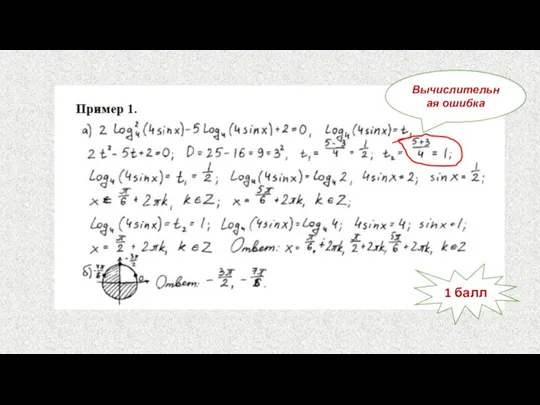 Вычислительн
ая ошибка
Пример 1.
а) 2 log₄²(4sinx) - 5 log₄(4sinx) + 2 = 0, log₄(4sinx) = t,
2t² - 5t + 2 = 0; D = 25 - 16 = 9 = 3², t₁ = (5-3)/4 = 1/2; t₂ = (5+3)/4 = 1;
log₄(4sinx) = t₁ = 1/2; log₄(4sinx) = log₄2, 4sinx = 2; sinx = 1/2;
x = π/6 + 2πk, k ∈ Z; x = 5π/6 + 2πk, k ∈ Z;
log₄(4sinx) = t₂ = 1; log₄(4sinx) = log₄4; 4sinx = 4; sinx = 1;
x = π/2 + 2πk, k ∈ Z Ответ: x = π/6 + 2πk, π/2 + 2πk, 5π/6 + 2πk, k ∈ Z
б) -7π/6 -3π/2 Ответ: -3π/2, -7π/6.
1 балл